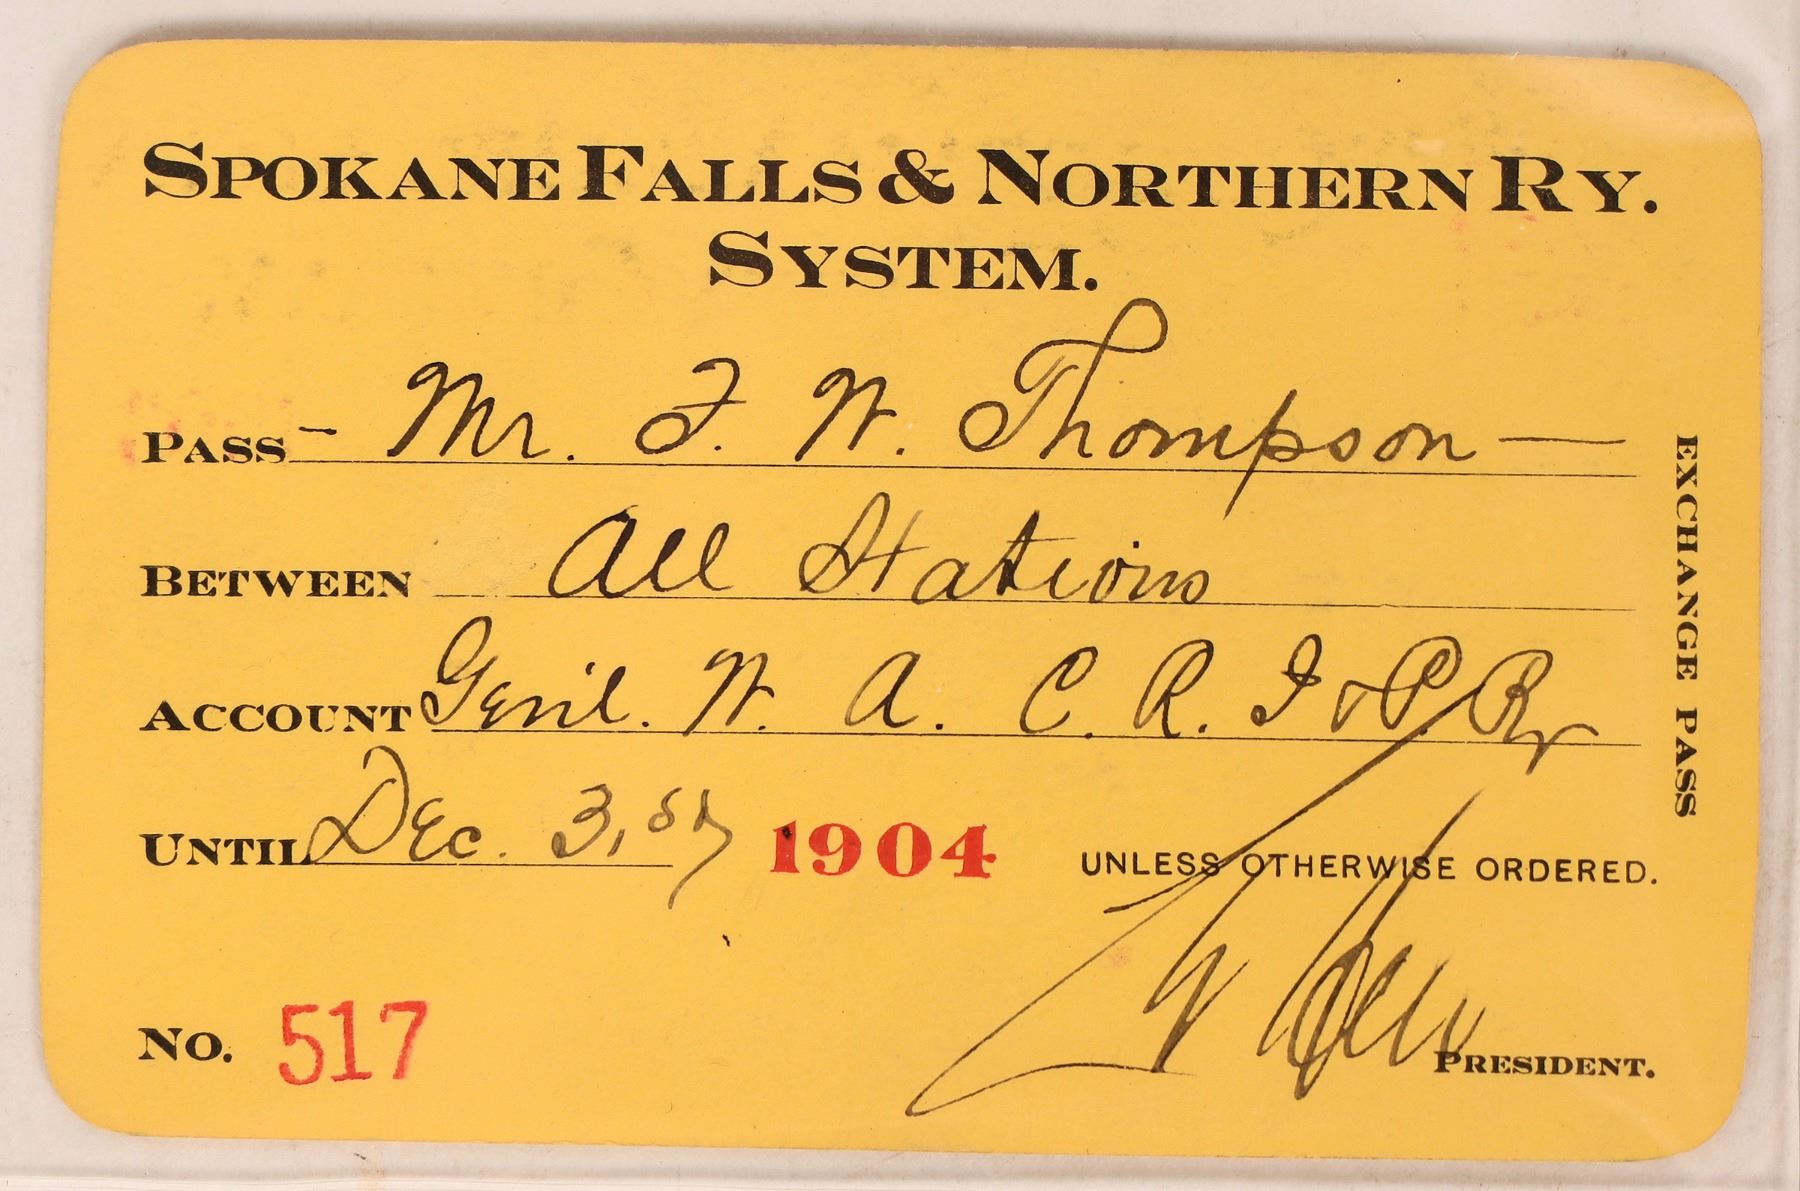 SPOKANE FALLS & NORTHERN RY.
SYSTEM.
PASS – Mr. F. W. Thompson —
BETWEEN All Stations
ACCOUNT Gen'l. W. A. C. R. I & P. Ry
UNTIL Dec. 31st 1904 UNLESS OTHERWISE ORDERED.
No. 517
PRESIDENT.
EXCHANGE PASS